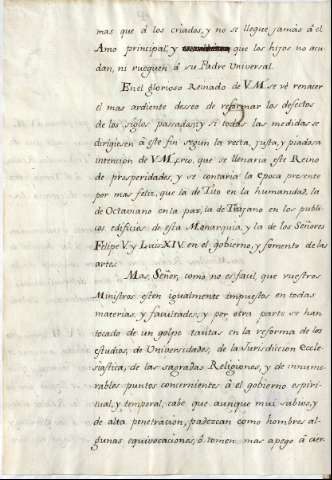 mas que á los criados, y no se llegue jamás á el
Amo principal, y que los hijos no acu
dan, ni rueguen á su Padre Universal.
En el glorioso Reinado de V.M. se vé renacer
el mas ardiente deseo de reformar los defectos
de los siglos pasados; y si todas las medidas se
dirigiesen á este fin segun la recta, justa, y piadosa
intencion de V.M. creo, que se llenaria este Reino
de prosperidades, y se contaria la epoca presente
por mas feliz, que la de Tito en la humanidad, la
de Octaviano en la paz, la de Trajano en los publi
cos edificios de esta Monarquia, y la de los Señores
Felipe V. y Luis XIV. en el gobierno, y fomento de las
artes.
Mas, Señor, como no es facil, que vuestros
Ministros esten igualmente impuestos en todas
materias, y facultades, y por otra parte se han
tocado de un golpe tantas en la reforma de los
estudios, de Universidades, de la Jurisdiccion ecle
siastica, de las sagradas Religiones, y de innume
rables puntos concernientes á el gobierno espiri
tual, y temporal, cabe que aunque mui sabios, y
de alta penetracion, padezcan como hombres al
gunas equivocaciones, ó tomen mas apego á cier